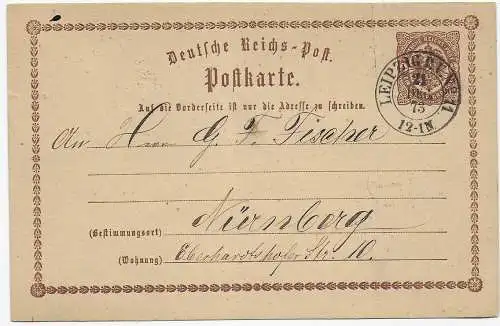 Deutsche Reichs-Post.
Postkarte.
Auf die Vorderseite ist nur die Adresse zu schreiben.
LEIPZIG
21
75
12-1N.
An Herrn G. F. Fischer
Nürnberg
(Bestimmungsort)
Eberhardtshofer Str. 10.
(Wohnung)